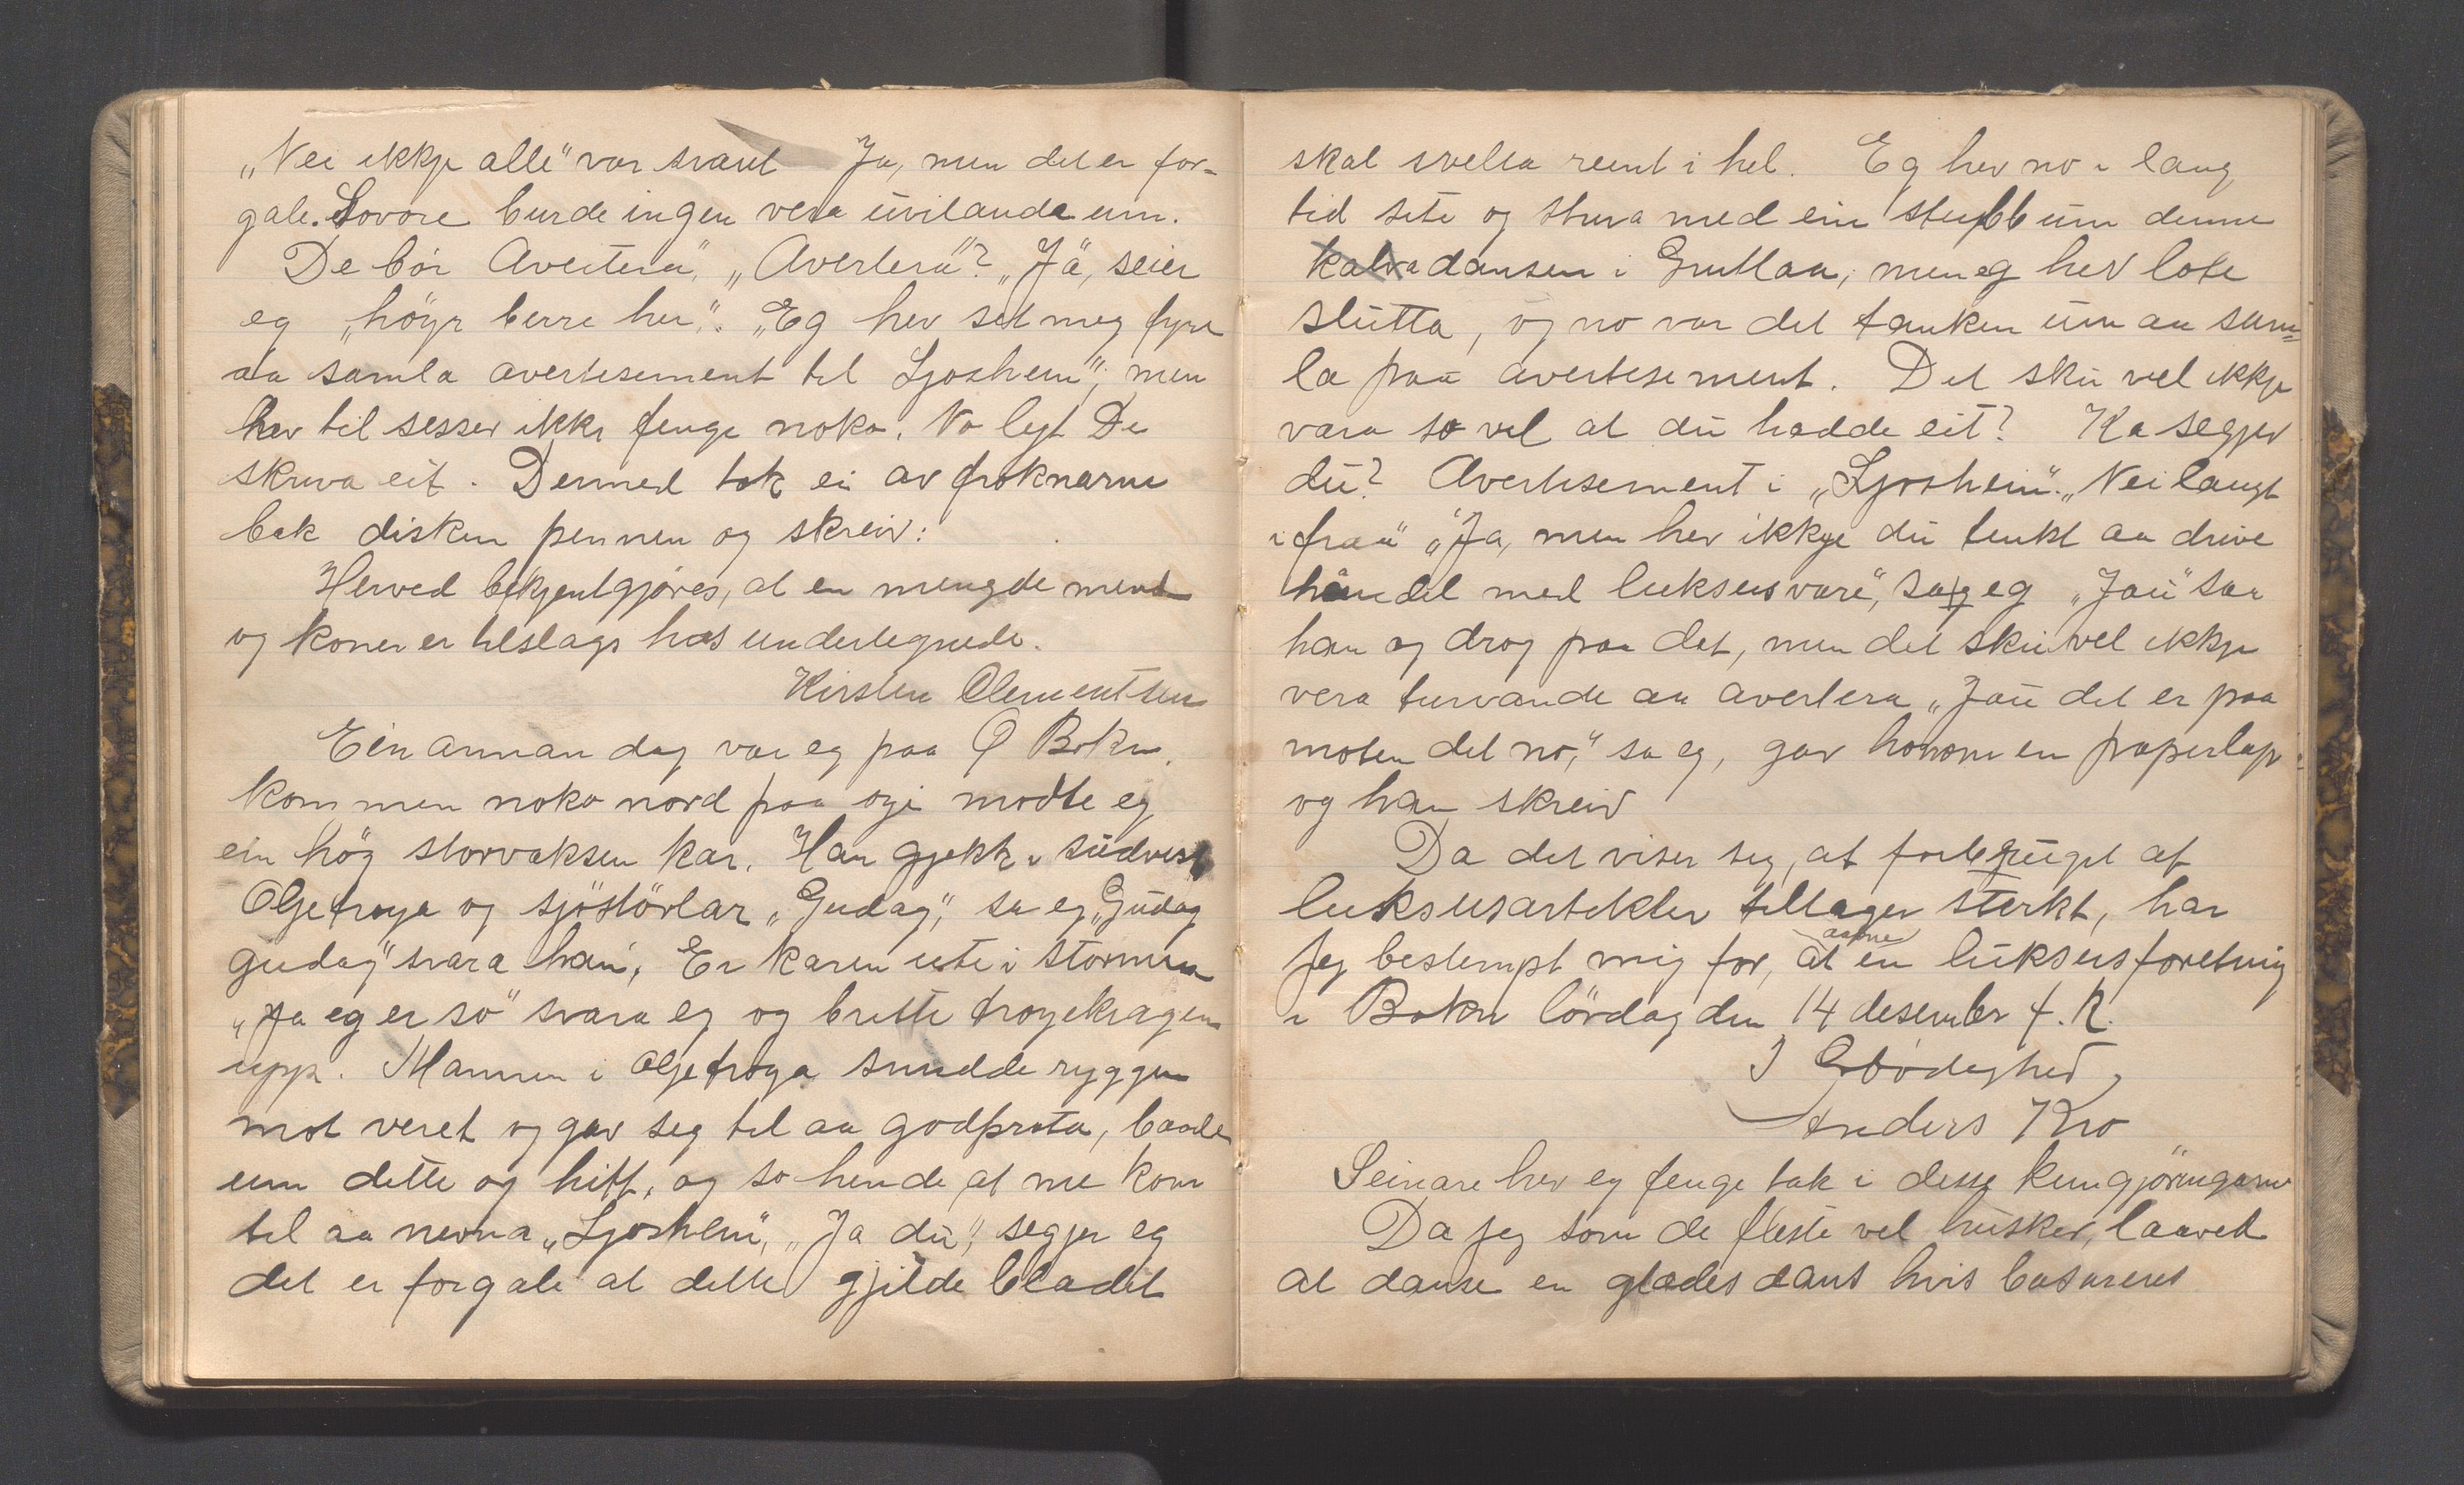 „Nei ikkje alle" var svaret Ja, men det er for-
gale. Sovore burde ingen vera uvitande um.
De bör Avertera", „Avertera"? „Jä, seier
eg „höyr berre her". „Eg hev set meg fyre
aa samla avertisement til Ljosheim", men
hev til sesser ikkje fenge noko. No lyt De
skriva eit. Dermed tok ei av frøknarne
bak disken pennen og skreiv:
Herved bekjentgjöres, at en mengde mend
og koner er tilslags hos undertegnede.
Kirsten Clementsen
Ein annan dag var eg paa Ø Bokn,
kommen noko nord paa öyi modte eg
ein hög storvaksen kar. Han gjekk i südvest
Oljetroya og sjöstövlar „Gudag", sa eg „Gudag
gudag" svara han, Er karen ute i stormen
„Ja eg er so" svara eg og brette troyekragen
upp. Mannen i oljetroya snudde ryggen
mot veret og gav seg til aa godprata, baade
um dette og hitt, og so hende at me kom
til aa nevna „Ljosheim", „Ja du", segjer eg
det er forgale at dette gjilde bladet
skal svelta reint i hel. Eg hev no i lang
tid sete og stura med ein stubb um denne
kalvadansen i Gruttaa, men eg hev lote
slutta, og no var det tanken um aa sam=
la paa avertisement. Det sku vel ikkje
vara so vel at du hadde eit? Ka segjer
du? Avertisement i „Ljosheim". „Nei langt
ifraa" „Ja, men hev ikkje du tenkt aa drive
handel med luksusvare", sag eg „Jau" saa
han og drog paa det, men det sku vel ikkje
vera turvande aa avertera „Jau det er paa
moten det no," sa eg, gav honom en papirlap
og han skreiv
Da det viser seg, at forbruget af
luksusartikler tiltager sterkt, har
Jeg bestempt mig for, at aapne en luksusforetning
i Bokn lördag den 14 desember f. k.
I Erbödighed
Anders Kro
Seinare hev eg fenge tak i desse kungjöringarne
Da Jeg som de fleste vel husker, laaved
at danse en glædes dans hvis basarens